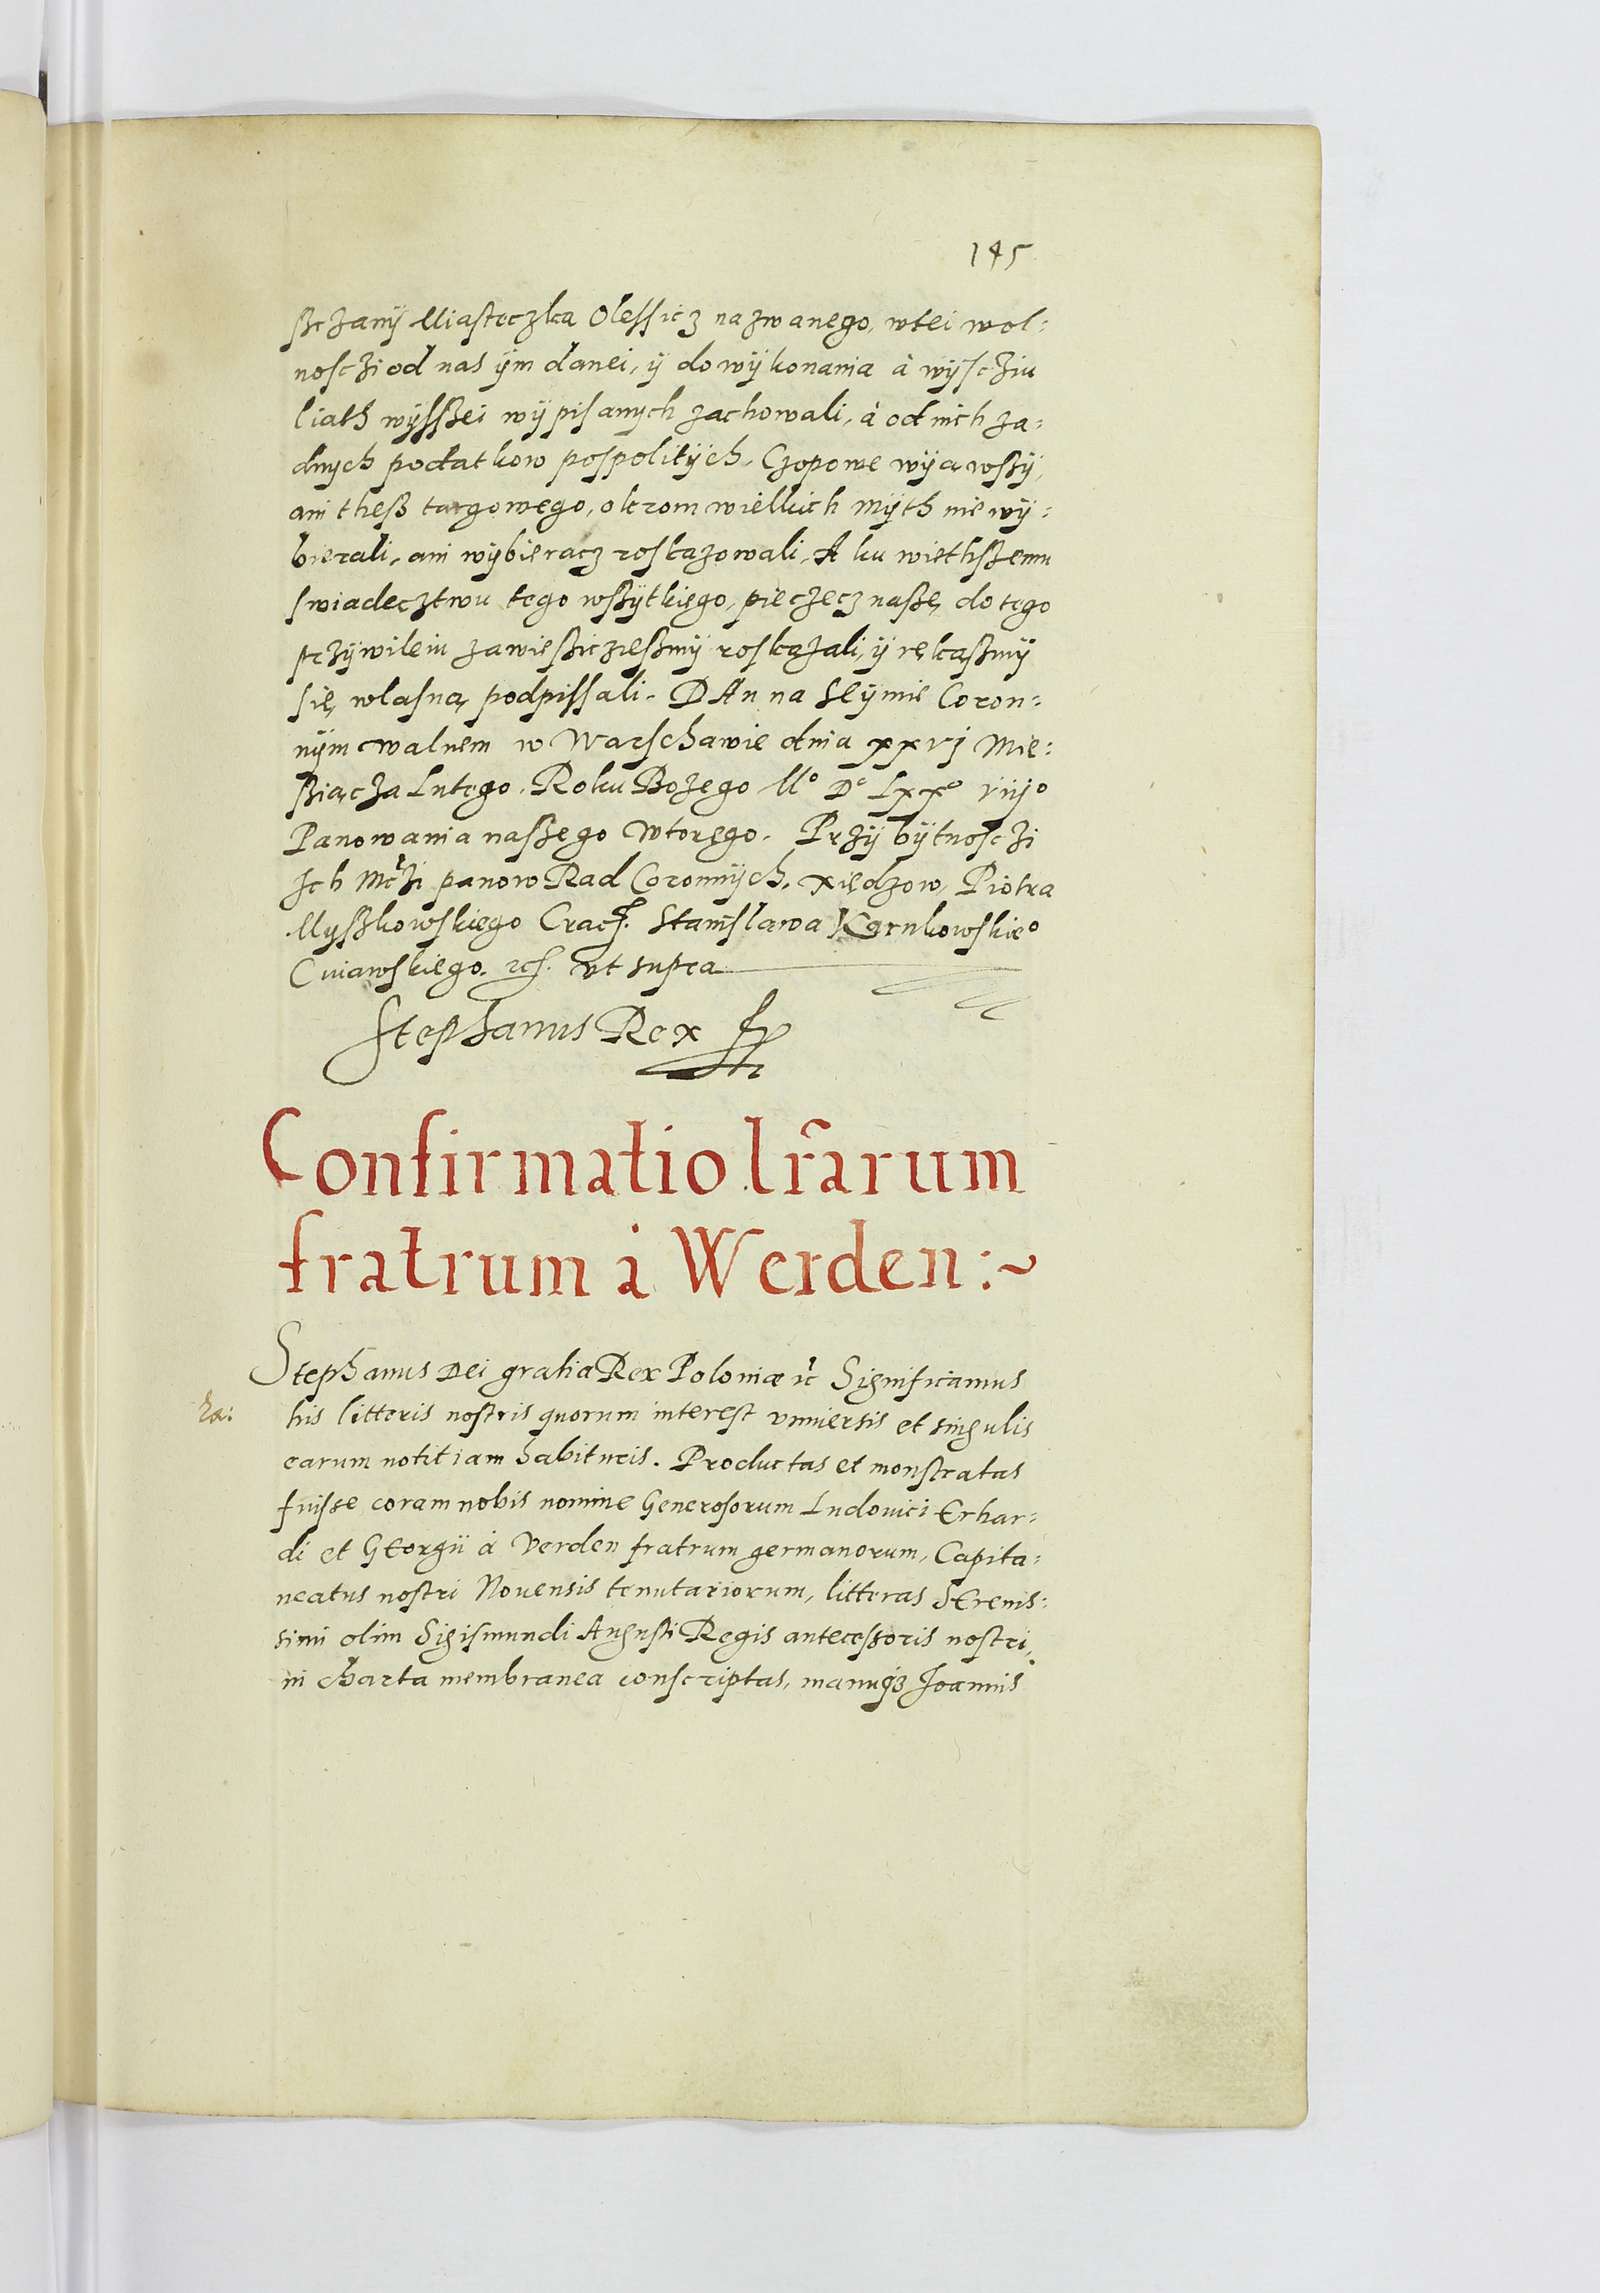 145
szczanÿ Miasteczka Olessicz nazwanego, wtei wol:
nosczi od nas ÿm danei, ÿ do wÿkonania à wÿsczÿu
liath wÿsszei wÿpisanych zachowali, à od nich za:
dnych podatkow pospolitÿch, Czopowe wÿiawszÿ,
ani thesz targowego, okrom wielkich mÿth nie wÿ:
bierali, ani wÿbieracz roskazowali, A ku wiethszemu
swiadecztwu tego wszÿtkiego, pieczęcz naszę do tego
przÿwileiu zawieszicziesmÿ roskazali, ÿ rękaszmÿ
się własną podpissali. DAn na Seÿmie Coron:
nÿm walnem w Warschawie dnia xxvj Mie:
sziącza Lutego. Roku Bozego Mº Dº Lxxº viijº
Panowania naszego Wtorego. Przÿ bÿtnosczi
Ich Mczi panow Rad Coronnÿch, xiędzow, Piotra
Myszkowskiego Crac. Stanislawa Karnkowskieº
Cuiawskiego. etc. vt supra
Stephanus Rex
Confirmatio lrarum
fratrum à Werden:~
Stephanus Dei gratia Rex Poloniæ etc Significamus
ha: his litteris nostris quorum interest vniuersis et singulis
earum notitiam habituris. Productas et monstratas
fuisse coram nobis nomine Generosorum Ludouici Erhar:
di et GEorgii à Verden fratrum germanorum, Capita:
neatus nostri Nouensis tenutariorum, litteras SErenis:
simi olim Sigismundi Augusti Regis antecessoris nostri,
in charta membranea conscriptas, manuq3 Joannis